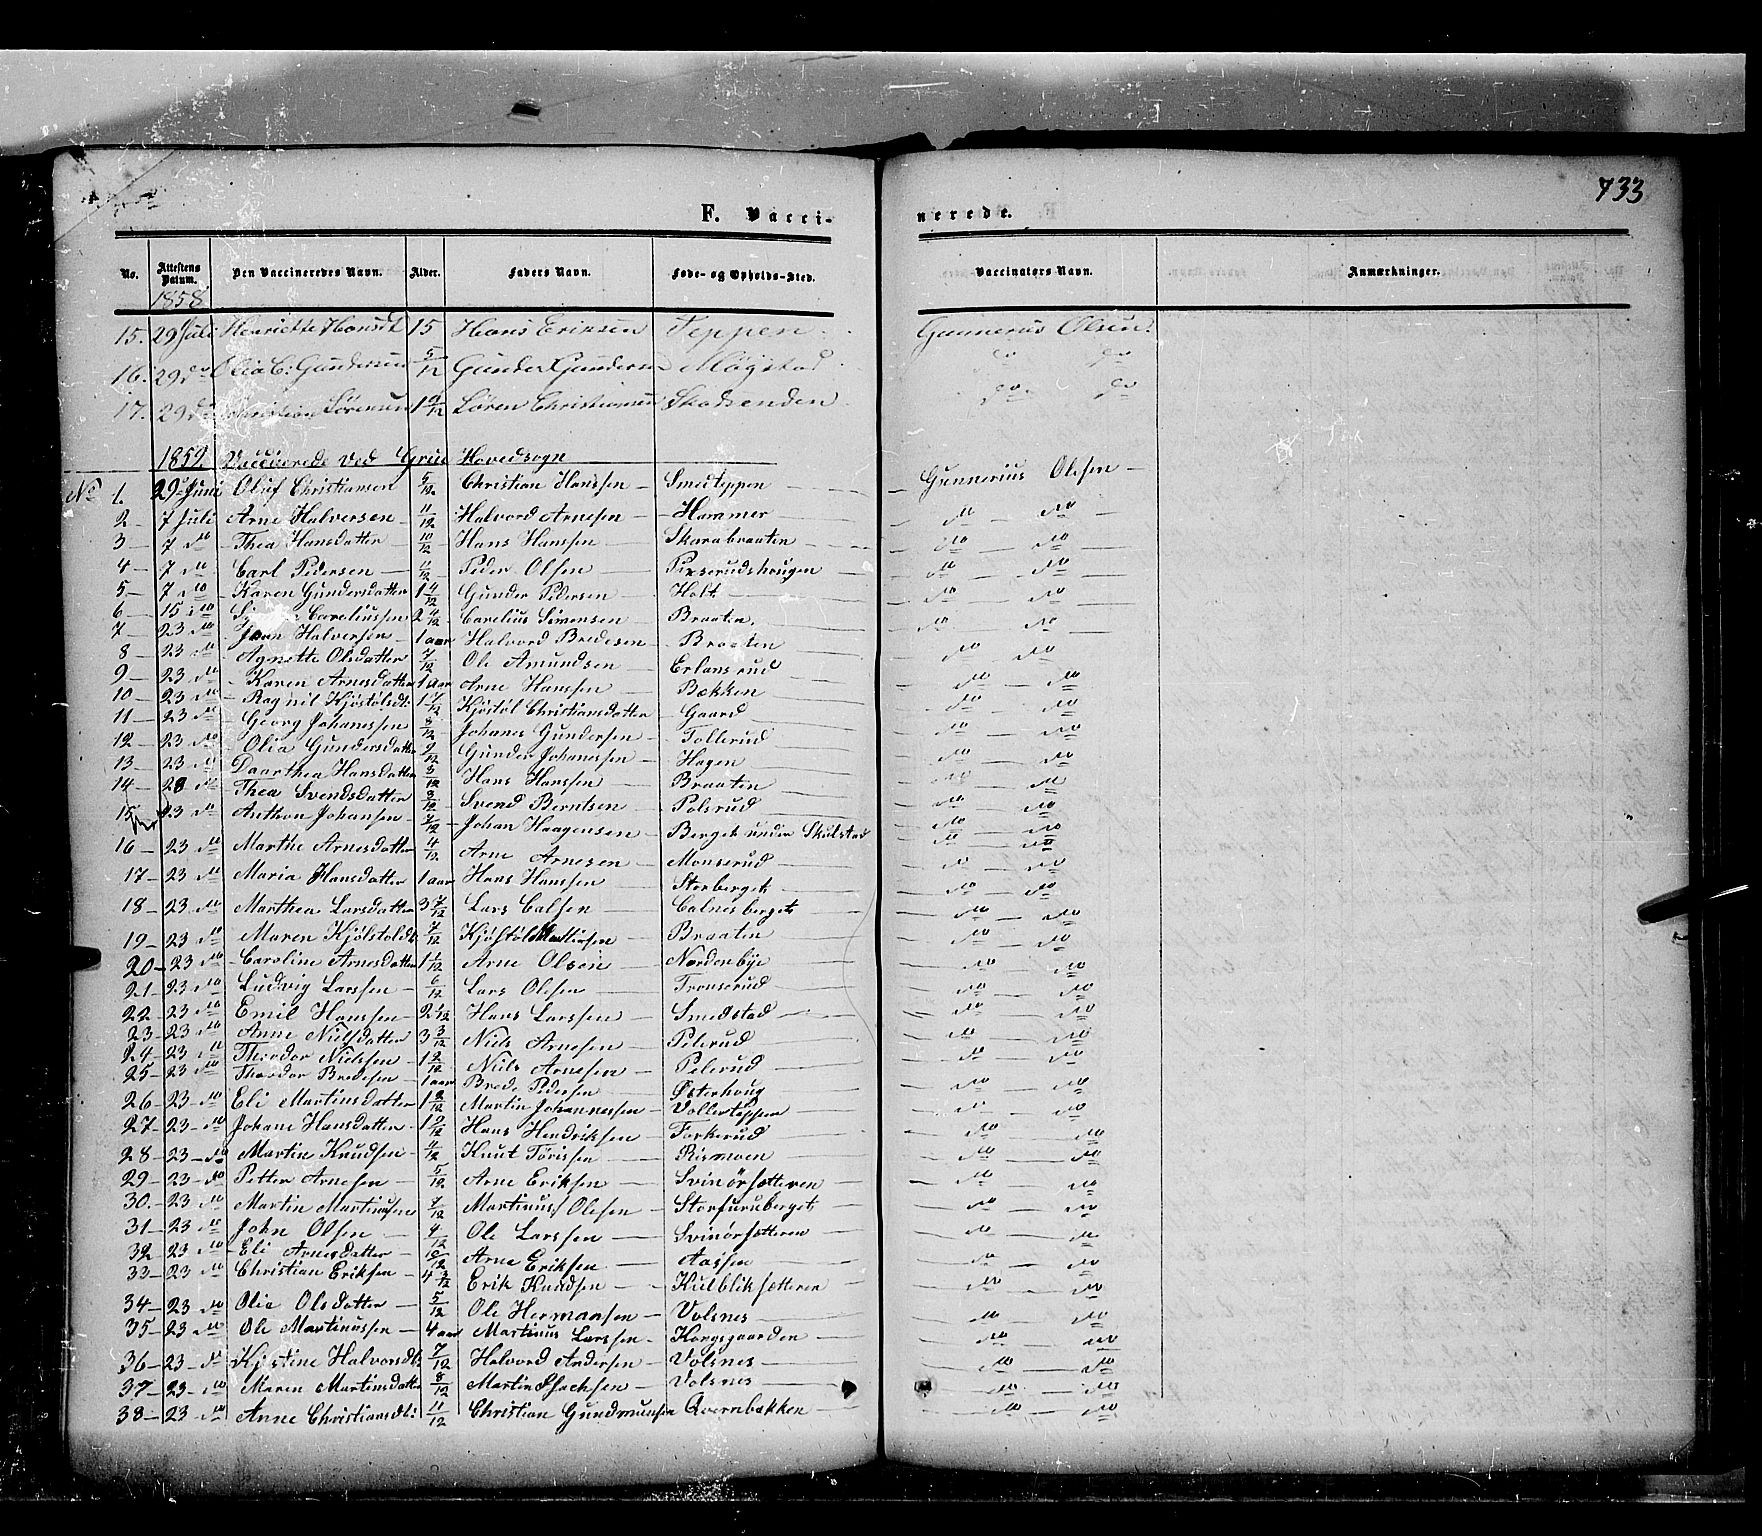 733
F. Vacci-
nerede.
No. Attestens Datum. Den Vaccineredes Navn. Alder. Faders Navn. Føde- og Opholds-Sted. Vaccinators Navn. Anmærkninger.
1858
15. 29 Juli Henriette Hansdt 15 Hans Eriksen Teppen. Gunnerius Olsen.
16. 29 do Olia C: Gundersen 5/12 Gunder Gundersen Møystad do do
17. 29 do Christian Sørensen Søren Christiansen Skadsenden do do
1859 Vaccinerede ved Grue Hovedsogn
No 1. 29 Juni Oluf Christiansen 5/12 Christian Hanssen Smedteppen Gunnerius Olesen
2 7 Juli Arne Halversen 11/12 Halvord Arnesen Hammer do do
3 7 do Thea Hansdatter 10/12 Hans Hanssen Skarabraaten do do
4 7 do Carl Pedersen 11/12 Peder Olsen do do
5 7 do Karen Gundersdatter 1 4/12 Gunder Pedersen Holt do do
6 15 do Careliussen 2 Carelius Simensen Braaten do do
7 23 do Halversen 1 aar Halvord Bredesen Braaten do do
8 23 do Agnette Olsdatter 7/12 Ole Amundsen Erlansrud do do
9 23 do Karen Arnesdatter 1 aar Arne Hanssen Bækken do do
10 23 do Ragnil Kjøstølsdt: 1 Kjøstøl Christiansdatter Gaard do do
11 23 do Georg Johanessen 8/12 Johanes Gundersen Tollerud do do
12 23 do Olia Gundersdatter 9/12 Gunder Johanessen Hagen do do
13 23 do Daarthea Hansdatter Hans Hanssen Braaten do do
14 23 do Thea Svendsdatter 8/12 Svend Berntsen Polsrud do do
15 23 do Anthon Johansen Johan Haagensen Berget under Skulstad do do
16 23 do Marthe Arnesdatter 4/12 Arne Arnesen Monserud do do
17 23 do Maria Hansdatter 1 aar Hans Hanssen Storberget do do
18 23 do Marthea Larsdatter 3 7/12 Lars Calsen Calnesberget do do
19 23 do Maren Kjølstoldt: 7/12 Kjøstøl Braaten do do
20 23 do Caroline Arnesdatter 1 1/12 Arne Olsen Nordenbye do do
21 23 do Ludvig Larssen 6/12 Lars Olesen Tronserud do do
22 23 do Emil Hanssen 2 Hans Larssen Smedstad do do
23 23 do Anne Nielsdatter 3 3/12 Niels Arnesen Pelerud do do
24 23 do Theodor Nielssen 1 2/12 Niels Arnesen Pelerud do do
25 23 do Theodor Bredesen 1 aar Brede Pedersen Østerhoug do do
26 23 do Eli Martinsdatter 1 2/12 Martin Johannessen Vollerteppen do do
27 23 do Johane Hansdatter 1 9/12 Hans Hendriksen Forkerud do do
28 23 do Martin Knudsen Knut Torissen Rismoen do do
29 23 do Petter Arnesen 5/12 Arne Eriksen Svinørsætteren do do
30. 23 do Martin Martinusen 7/12 Martinus Olesen Storfuruberget do do
31 23 do John Olsen Ole Larssen Svinørsætteren do do
32 23 do Eli Arnesdatter Arne Eriksen Aassen do do
33 23 do Christian Eriksen 4 Erik Knudsen Kielbliksætteren do do
34 23 do Olia Olsdatter 5/12 Ole Hermansen Volsnes do do
35 23 do Ole Martinussen 4 aar Martinus Larssen Korgsgaarden do do
36 23 do Kjestine Halvorsdt 7/12 Halvord Andersen Volsnes do do
37 23 do Maren Martinsdatter 8/12 Martin Isachsen Volsnes do do
38 23 do Anne Christiansdt: 11/12 Christian Gundmunsen Qvernbakken do do